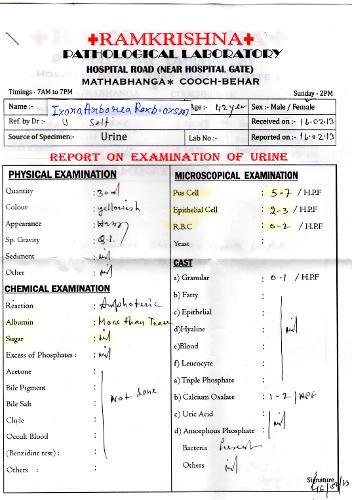 +RAMKRISHNA+
PATHOLOGICAL LABORATORY
HOSPITAL ROAD (NEAR HOSPITAL GATE)
MATHABHANGA* COOCH-BEHAR
Timings - 7AM to 7PM Sunday - 2PM
Name :- Ixora Arborea Roxb- Age :- 42 yer Sex :- Male / Female
Ref. by Dr :- Self Received on : 16.02.13
Source of Specimen: Urine Lab No :- Reported on : 16.02.13
REPORT ON EXAMINATION OF URINE
PHYSICAL EXAMINATION
Quantity : 30ml
Colour : yellowish
Appearance : Hazy
Sp. Gravity : Q.I.
Sediment : nil
Other : nil
CHEMICAL EXAMINATION
Reaction : Amphoteric
Albumin : More than Trace
Sugar : nil
Excess of Phosphates : nil
Acetone :
Bile Pigment :
Bile Salt : Not done
Chyle :
Occult Blood :
(Benzidine test) :
Others :
MICROSCOPICAL EXAMINATION
Pus Cell : 5-7 / H.P.F
Epithelial Cell : 2-3 / H.P.F
R.B.C : 0-2 / H.P.F
Yeast :
CAST
a) Granular : 0-1 / H.P.F
b) Fatty :
c) Epithelial :
d)Hyaline : nil
e)Blood :
f) Leucocyte :
a) Triple Phosphate :
b) Calcium Oxalate : 1-2 / HPF
c) Uric Acid :
d) Amorphous Phosphate : nil
Bacteria Present
Others nil
Signature